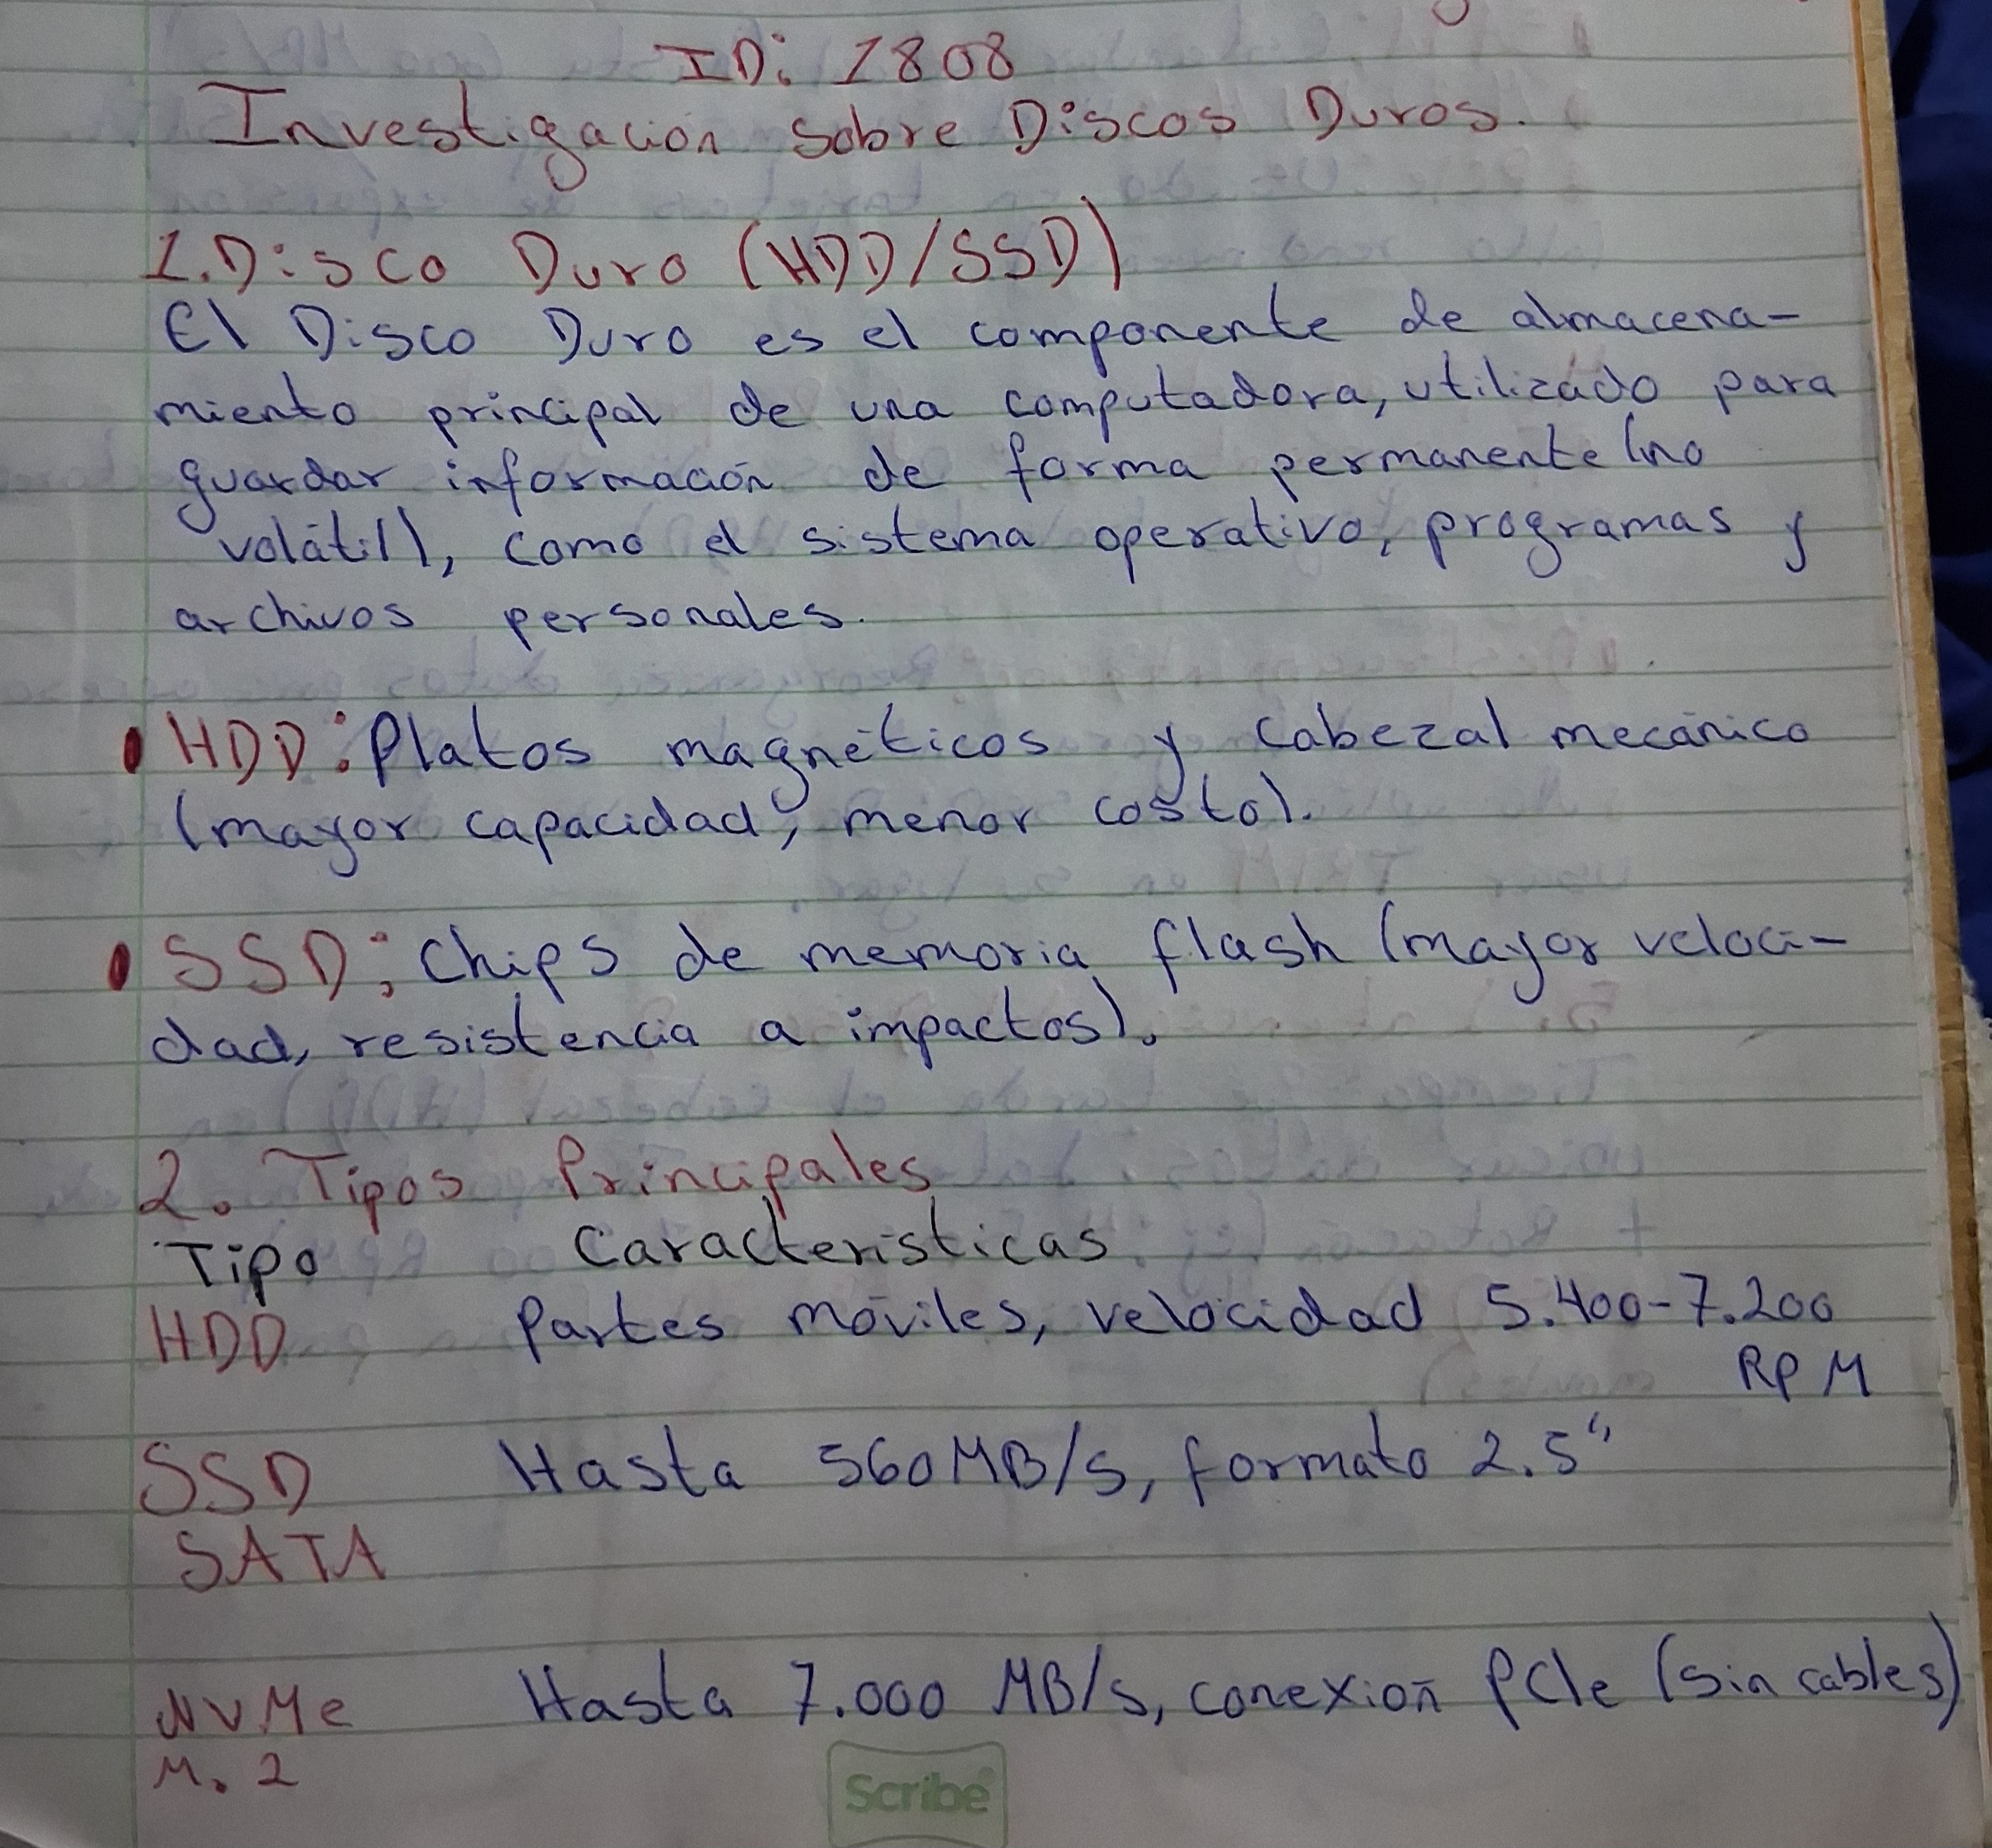 ID: 1808
Investigación sobre Discos Duros.
1. Disco Duro (HDD/SSD)
El Disco Duro es el componente de almacena-
miento principal de una computadora, utilizado para
guardar información de forma permanente (no
volátil), como el sistema operativo, programas y
archivos personales.
HDD: Platos magnéticos y cabezal mecánico
(mayor capacidad, menor costo).
SSD: Chips de memoria flash (mayor veloci-
dad, resistencia a impactos).
2. Tipos Principales
Tipo Características
HDD Partes móviles, velocidad 5.400-7.200
RPM
SSD Hasta 560MB/s, formato 2.5"
SATA
NVMe Hasta 7.000 MB/s, conexión PCIe (sin cables)
M.2
Scribe